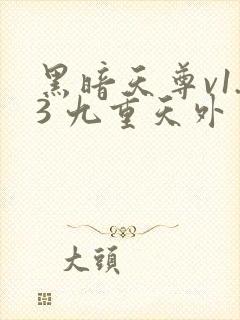 黑暗天尊v1.
3 九重天外
大頭